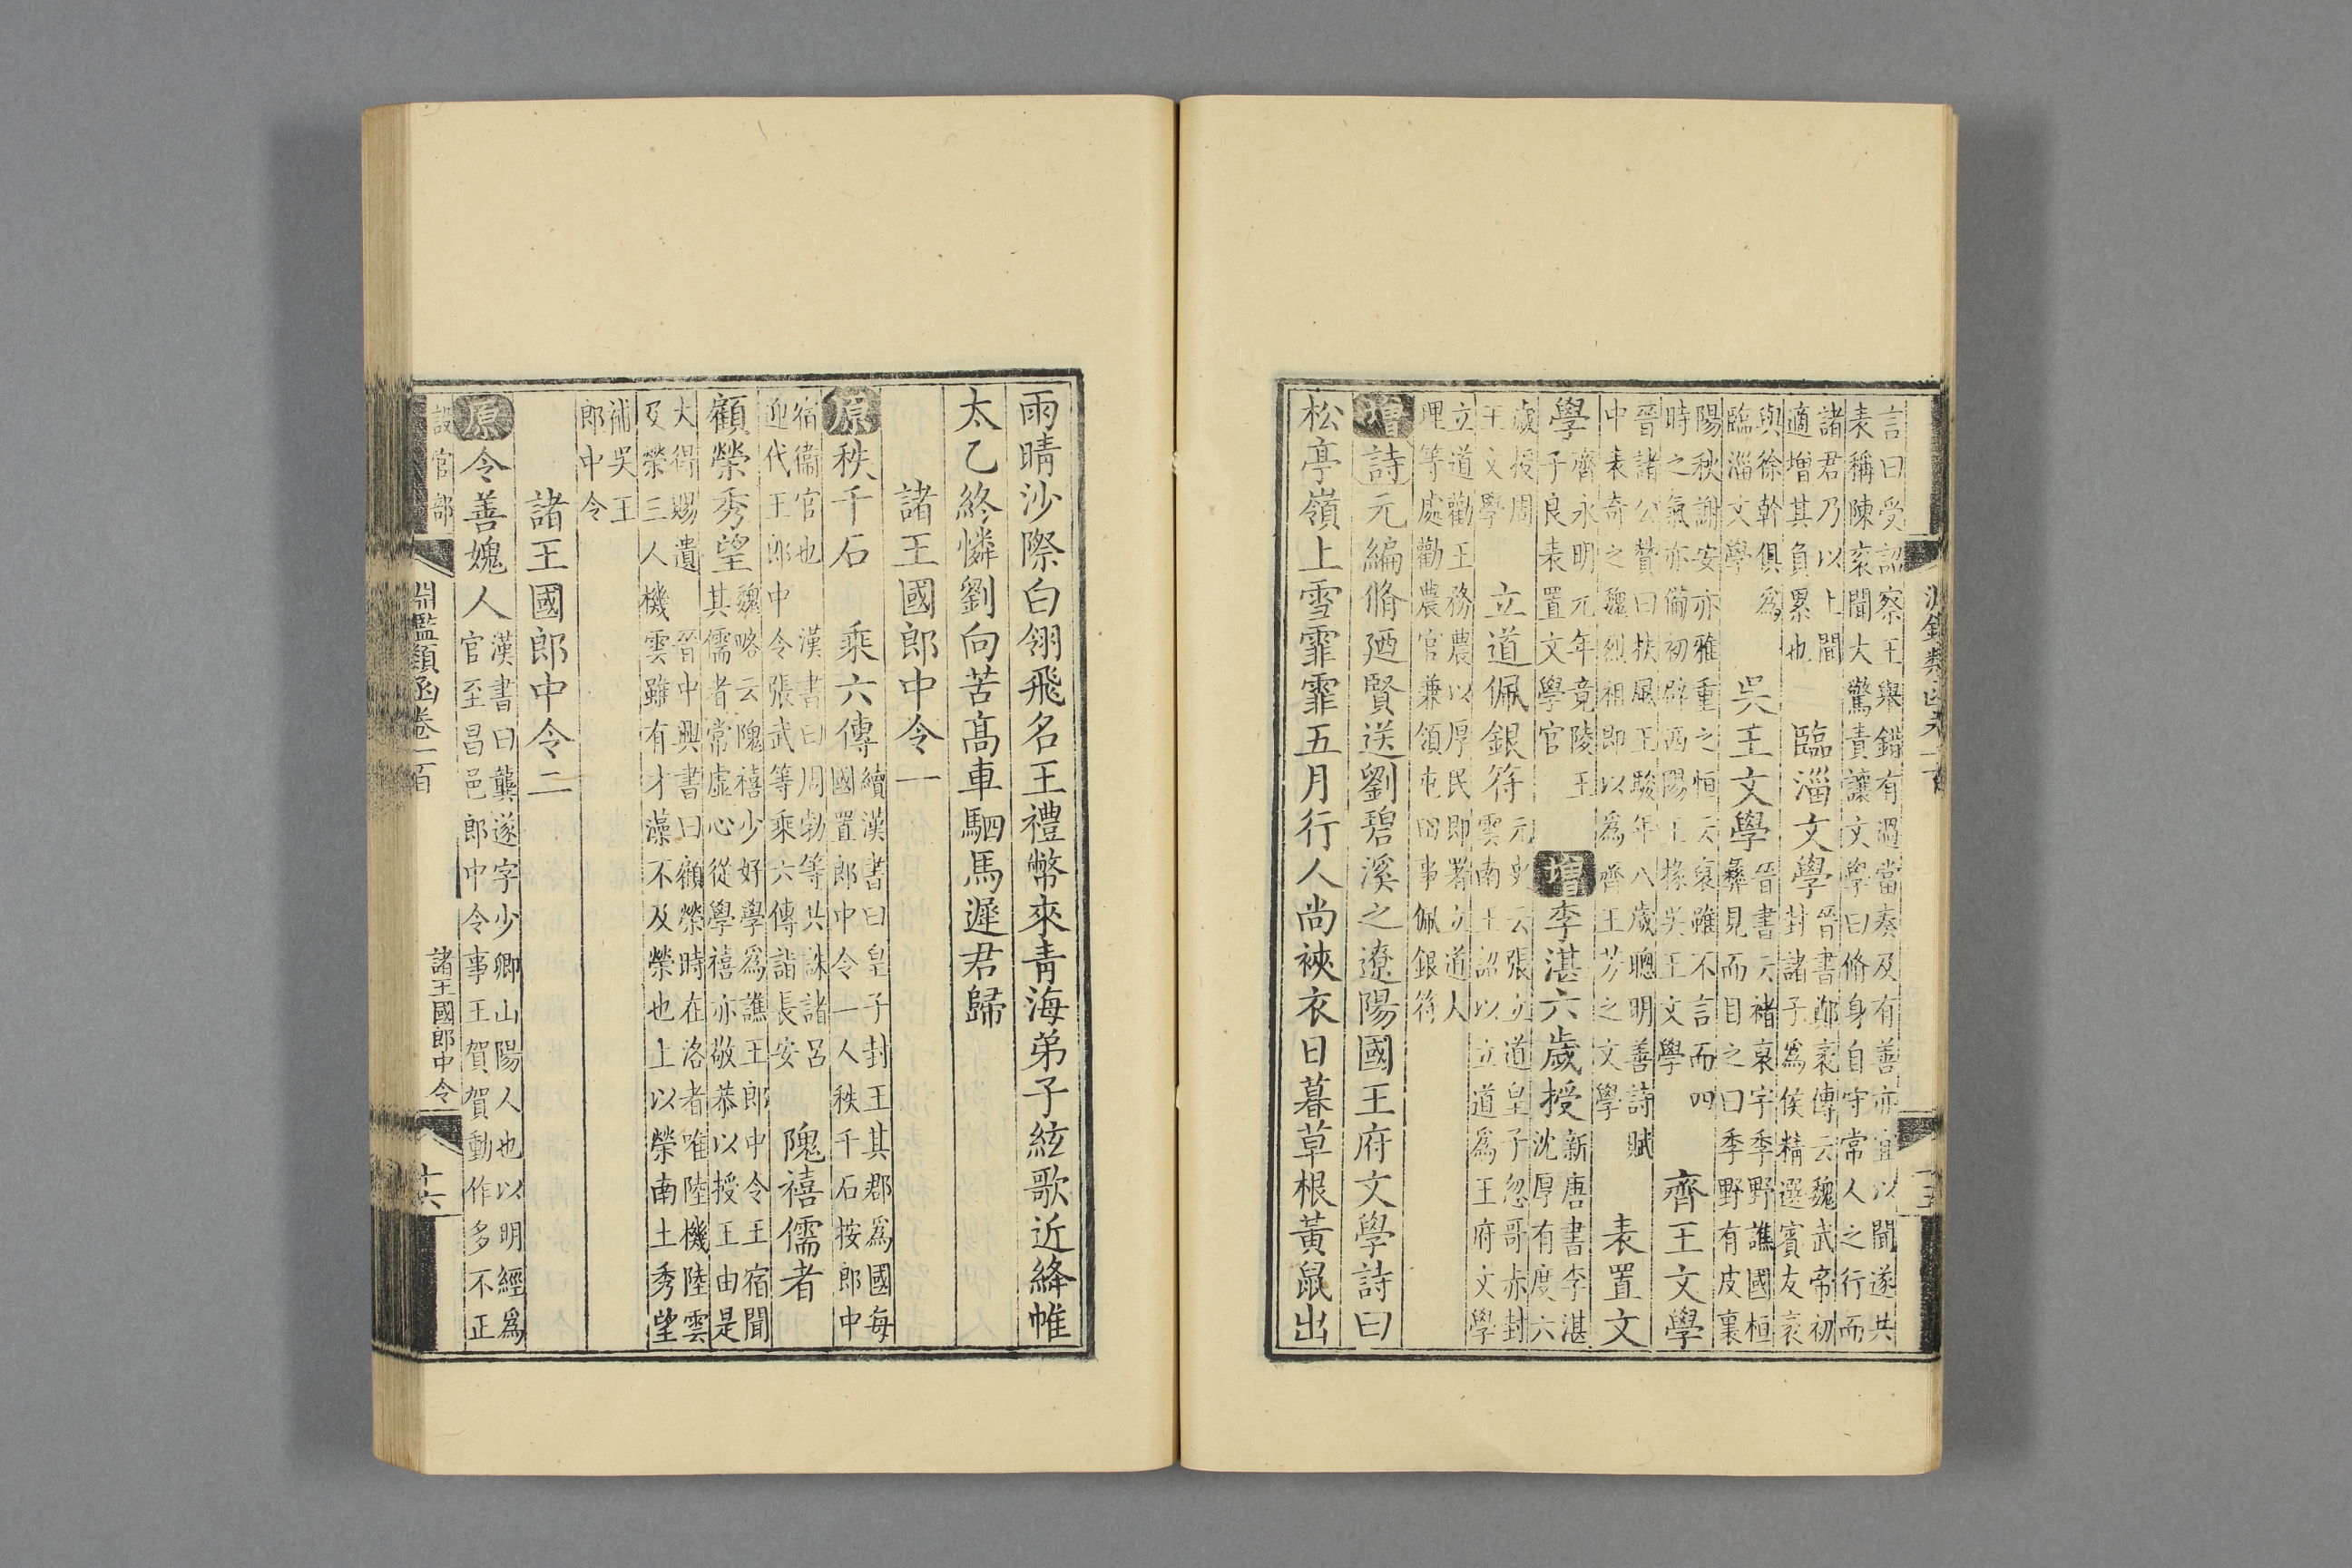 言曰受詔察王舉錯有過當奏及有善亦宜以聞遂共
表稱陳袞聞大驚責讓文學曰脩身自守常人之行而
諸君乃以上聞
適增其負累也
臨淄文學
晉書鄭袤傳云魏武帝初
封諸子爲侯精選賓友袤
與徐幹俱爲
臨淄文學
吳王文學
晉書云褚裒字季野譙國桓
彝見而目之曰季野有皮裏
陽秋謝安亦雅重之恒云裒雖不言而四
時之氣亦備初辟西陽王掾吳王文學
齊王文學
晉諸公贊曰扶風王駿年八歲聰明善詩賦
中表奇之魏烈祖即以爲齊王芳之文學
表置文
學
齊永明元年竟陵王
子良表置文學官
增李湛六歲授
新唐書李湛
沈厚有度六
歲授周
王文學
立道佩銀符
元史云張立道皇子忽哥赤封
雲南王詔以立道爲王府文學
立道勸王務農以厚民即署立道大
理等處勸農官兼領屯田事佩銀符
增詩元編脩廼賢送劉碧溪之遼陽國王府文學詩曰
松亭嶺上雪霏霏五月行人尚裌衣日暮草根黃鼠出
雨晴沙際白翎飛名王禮幣來青海弟子絃歌近絳帷
太乙終憐劉向苦高車駟馬遲君歸
諸王國郎中令一
原秩千石
乘六傳
續漢書曰皇子封王其郡爲國每
國置郎中令一人秩千石按郎中
宿衞官也
漢書曰周勃等共誅諸呂
迎代王郎中令張武等乘六傳詣長安
隗禧儒者
顧榮秀望
魏略云隗禧少好學爲譙王郎中令王宿聞
其儒者常虛心從學禧亦敬恭以授王由是
大得賜遺
晉中興書曰顧榮時在洛者唯陸機陸雲
及榮三人機雲雖有才藻不及榮也上以榮南土秀望
補吳王
郎中令
諸王國郎中令二
原令善媿人
漢書曰龔遂字少卿山陽人也以明經爲
官至昌邑郎中令事王賀賀動作多不正
設官部
淵鑑類函卷一百
諸王國郎中令
十六